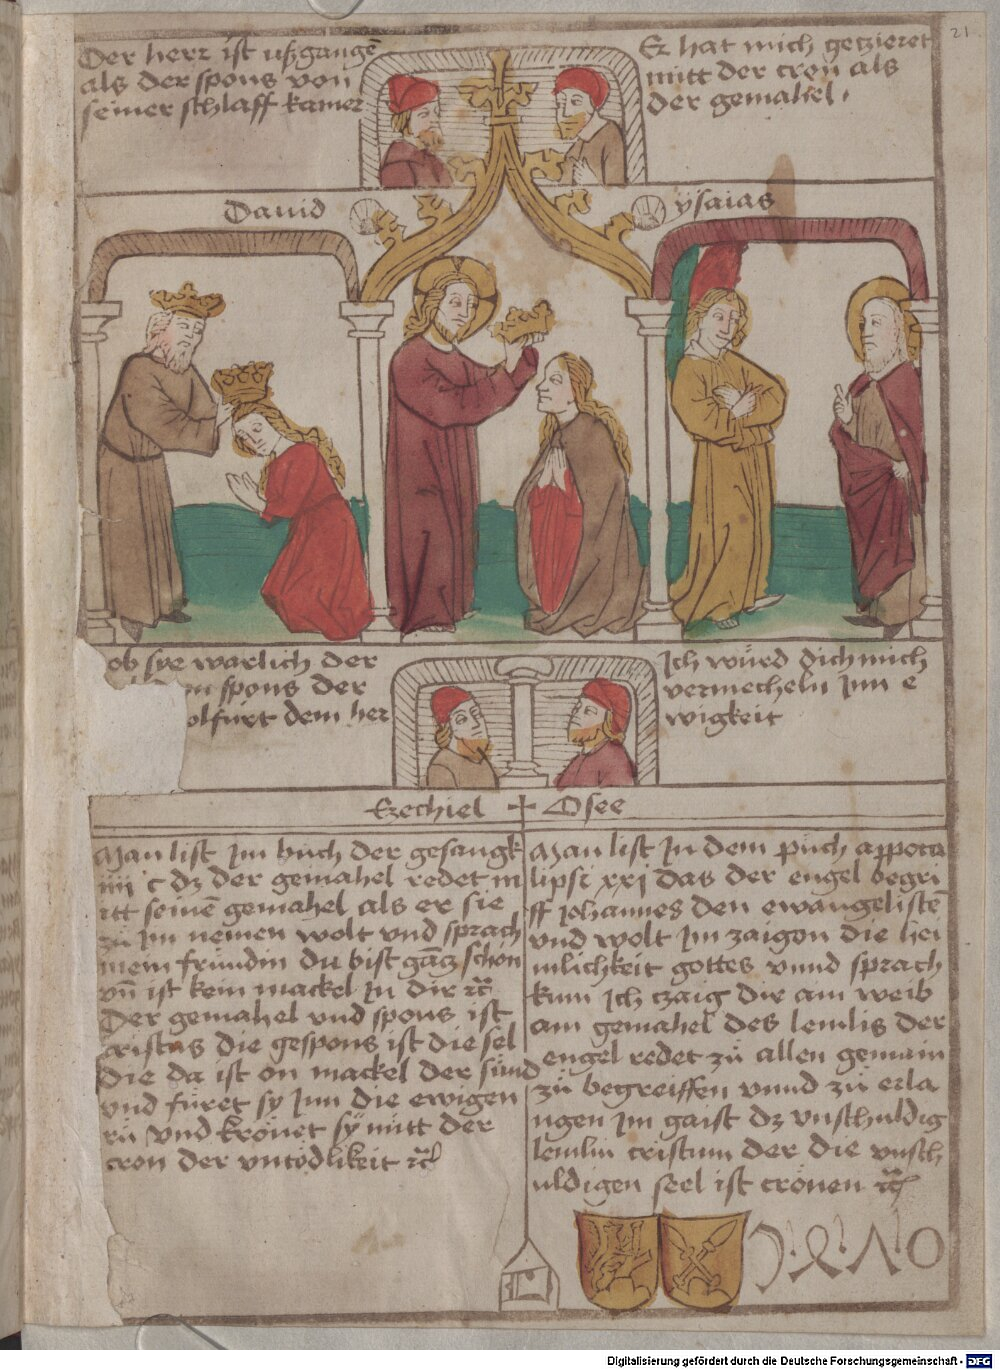 21
Der herr ist ußgangē
als der spons von
seiner schlaff kamer
Er hat mich getzieret
mitt der cron als
der gemahel.
Dauid
ysaias
ob sye warlich der
spons der
olfürt dem her
Ich würd dich mich
vermecheln jnn e
wigkeit
Ezechiel + Osee
Man list jm buch der gesangk
iiij c dz der gemahel redet m
itt seinē gemahel als er sie
zü jm nemen wolt vnd sprach
mein fründin du bist gācz schön
vn̄ ist kein mackel jn dir rc̄
Der gemahel vnd spons ist
cristus die gespons ist die sel
die da ist on mackel der sünd
vnd füret sy jnn die ewigen
rü vnd krönet sy mitt der
cron der vntödlikeit rc̄
Man list jn dem püch appoca
lipsi xxj das der engel begri
ff johannes den ewangelistē
vnd wolt jm zaigon die hei
mlichkeit gottes vnnd sprach
kum jch czaig dir am weib
am gemahel des lemlis der
engel redet zü allen gemain
zü begreiffen vnnd zü erla
ngen jm gaist dz vnschuldig
lemlin cristum der die vnsch
uldigen seel ist crönen rc̄
Digitalisierung gefördert durch die Deutsche Forschungsgemeinschaft - DFG